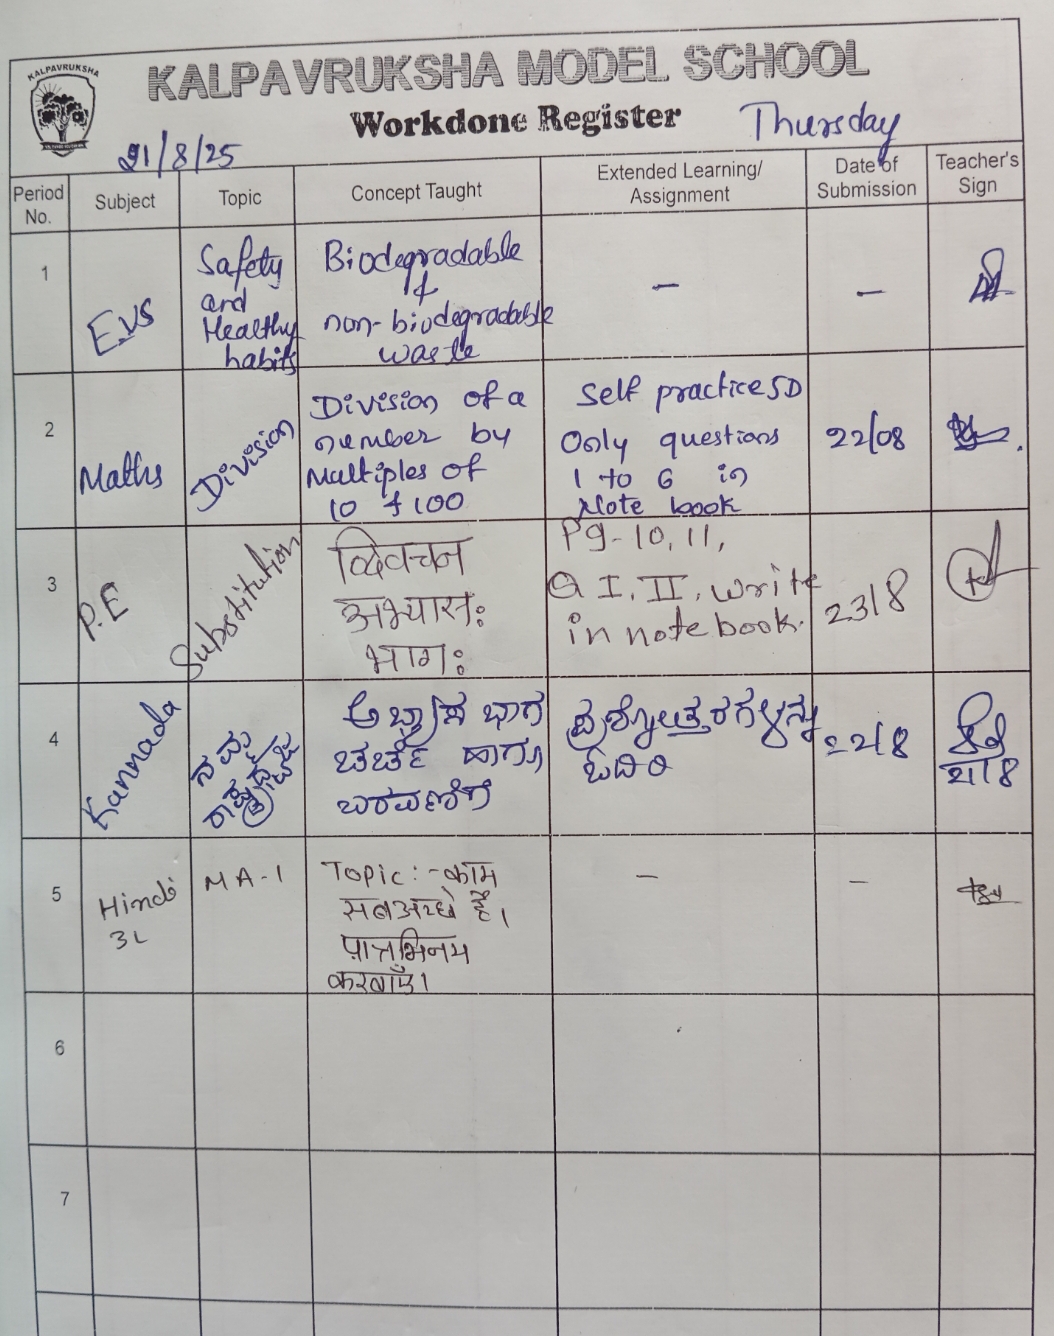 KALPAVRUKSHA
KALPAVRUKSHA MODEL SCHOOL
Workdone Register
Thursday
21/8/25
Period No.
Subject
Topic
Concept Taught
Extended Learning/
Assignment
Date of
Submission
Teacher's
Sign
1
EVS
Safety
and
Healthy
habits
Biodegradable
&
non-biodegradable
waste
-
-
2
Maths
Division
Division of a
number by
Multiples of
10 & 100
Self practice 5D
Only questions
1 to 6 in
Note book
22/08
3
P.E
Substitution
द्विवचन
अभ्यास:
भाग:
Pg-10, 11,
Q I, II, write
in note book.
23/8
4
Kannada
ನಮ್ಮ
ರಾಷ್ಟ್ರಧ್ವಜ
ಅಭ್ಯಾಸ ಭಾಗ
ಚರ್ಚೆ ಹಾಗೂ
ಬರವಣಿಗೆ
ಪ್ರಶ್ನೋತ್ತರಗಳನ್ನು
ಓದಿರಿ
22/8
21/8
5
Hindi
3L
MA-1
Topic:- काम
सब अच्छे हैं।
पात्राभिनय
करवाएँ।
-
-
6
7